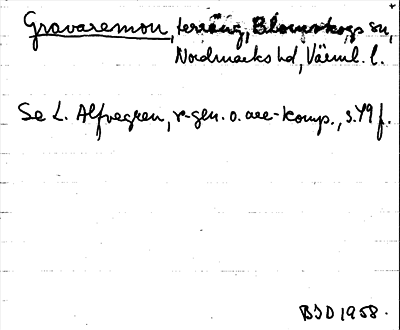 Gravaremon, terräng, Blomskogs sn,
Nordmarks hd, Värml. l.
Se L. Alfvegren, r-gen. o. are-komp., s. 49 f.
BJD 1958.